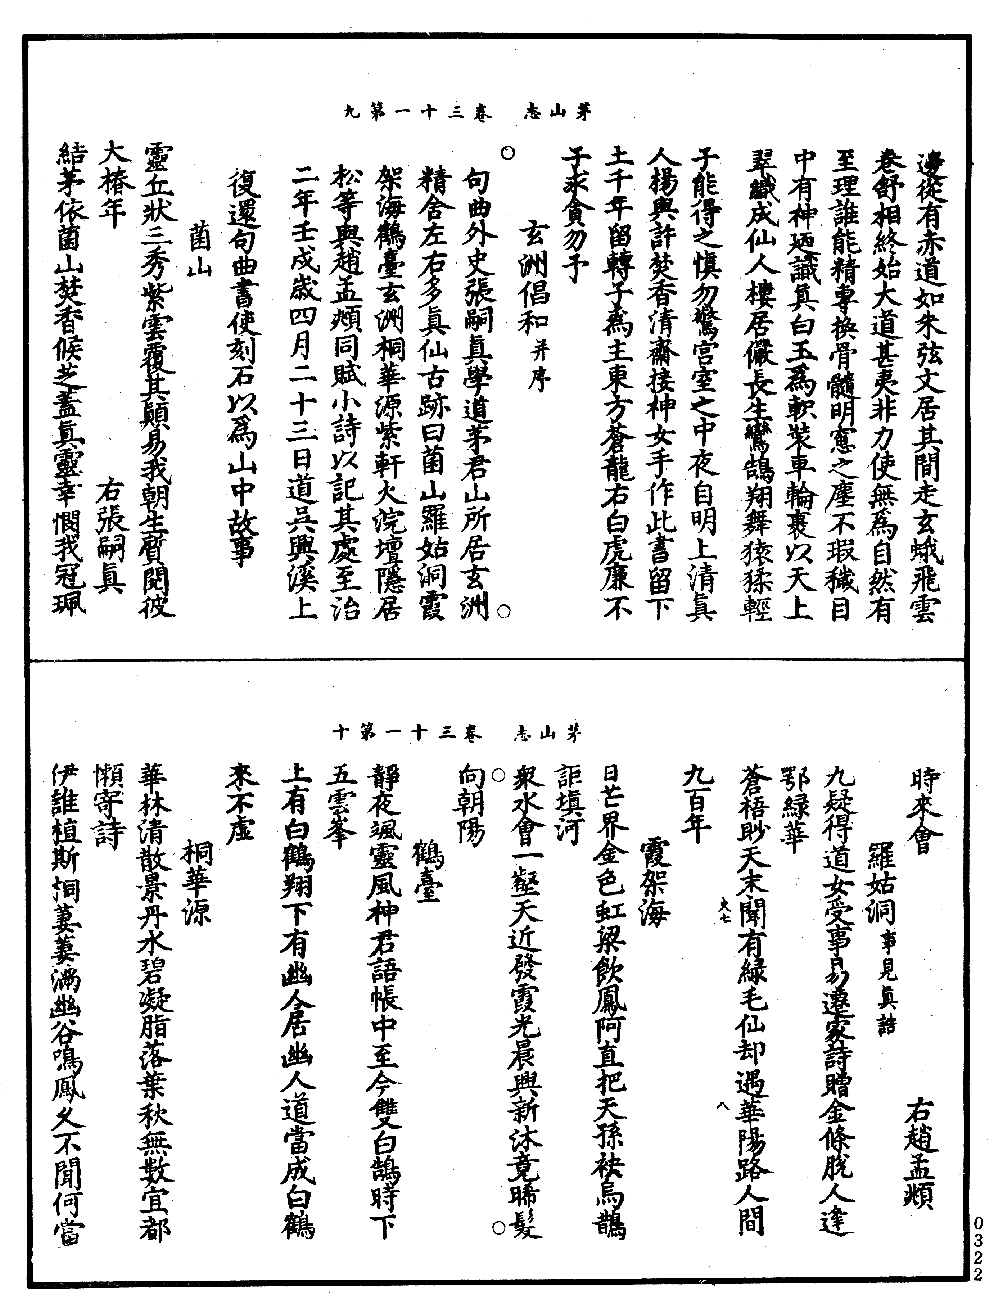 茅山志　卷三十一第九
邊從有赤道如朱弦文居其間走玄蛾飛雲
卷舒相終始大道甚夷非力使無為自然有
至理誰能精專換骨髓明窓之塵不瑕穢目
中有神廼識真白玉為軟裝車輪裹以天上
翠織成仙人樓居儼長生鸞鵠翔舞猿猱輕
子能得之慎勿驚宫室之中夜自明上清真
人楊與許焚香清齋接神女手作此書留下
土千年留轉子為主東方蒼龍右白虎廉不
子求貪勿予
玄洲倡和并序
句曲外史張嗣真學道茅君山所居玄洲
精舍左右多真仙古跡曰菌山羅姑洞霞
架海鶴臺玄洲桐華源紫軒火浣壇隱居
松等與趙孟頫同賦小詩以記其處至治
二年壬戌歲四月二十三日道吳興溪上
復還句曲書使刻石以為山中故事
菌山
靈丘狀三秀紫雲覆其顛易我朝生質閱彼
大椿年　右張嗣真
結茅依菌山焚香候芝蓋真靈幸憫我冠珮
茅山志　卷三十一第十
時來會　右趙孟頫
羅姑洞事見真誥
九疑得道女受事易遷家詩贈金條脫人逢
鄂緑華
蒼梧眇天末聞有緑毛仙却遇華陽路人間
九百年
霞架海
日芒界金色虹梁飲鳳阿直把天孫袂烏鵲
詎填河
衆水會一壑天近發霞光晨興新沐竟晞髮
向朝陽
鶴臺
靜夜颯靈風神君語帳中至今雙白鵠時下
五雲峯
上有白鶴翔下有幽人居幽人道當成白鶴
來不虚
桐華源
華林清散景丹水碧凝脂落葉秋無數宜都
懶寄詩
伊誰植斯桐萋萋滿幽谷鳴鳳久不聞何當
0322